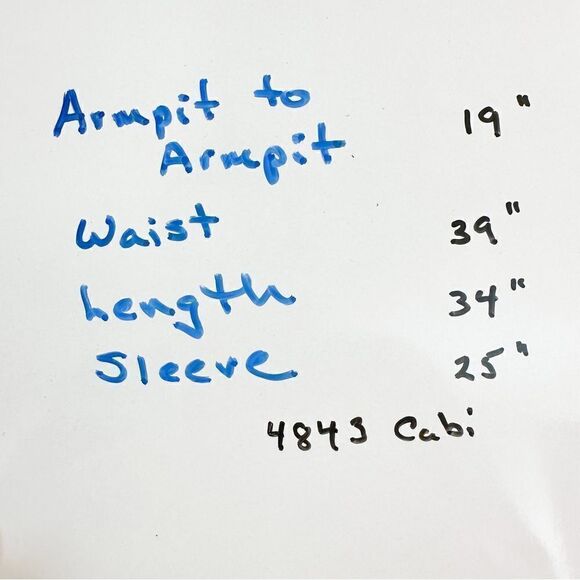 Armpit to 19"
Armpit
Waist 39"
Length 34"
Sleeve 25"
4843 Cabi